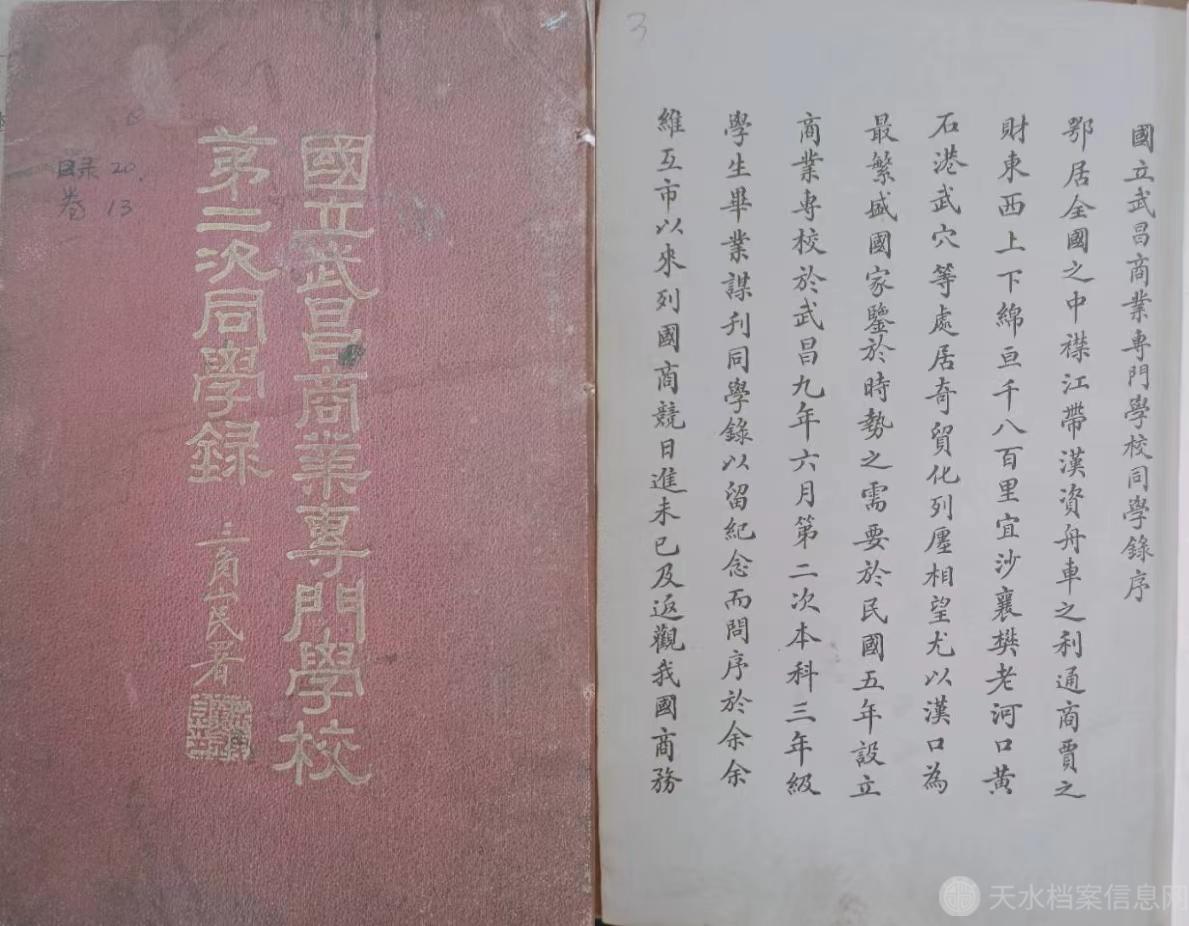 國立武昌商業專門學校
第二次同學録
三角山民署
目录20.
卷 13
3
國立武昌商業專門學校同學錄序
鄂居全國之中襟江帶漢資舟車之利通商賈之
財東西上下綿亘千八百里宜沙襄樊老河口黃
石港武穴等處居奇貿化列廛相望尤以漢口為
最繁盛國家鑒於時勢之需要於民國五年設立
商業專校於武昌九年六月第二次本科三年級
學生畢業謀刊同學錄以留紀念而問序於余余
維互市以來列國商競日進未已及返觀我國商務
天水档案信息网